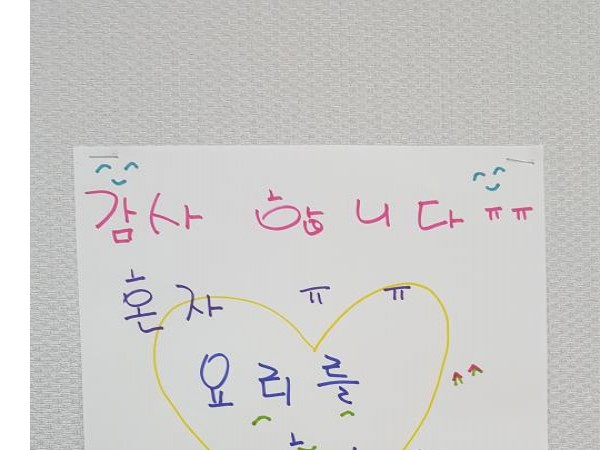 감사 합니다ㅠㅠ
혼자 ㅠ ㅠ
요리를